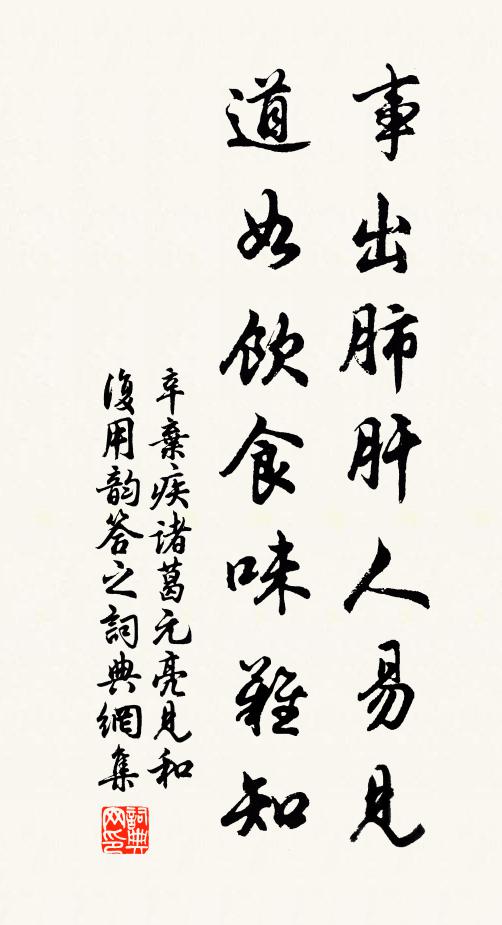 事出肺肝人易見
道如飲食味難知
辛棄疾諸葛元亮見和
復用韵答之詞典網集
詞典
网印